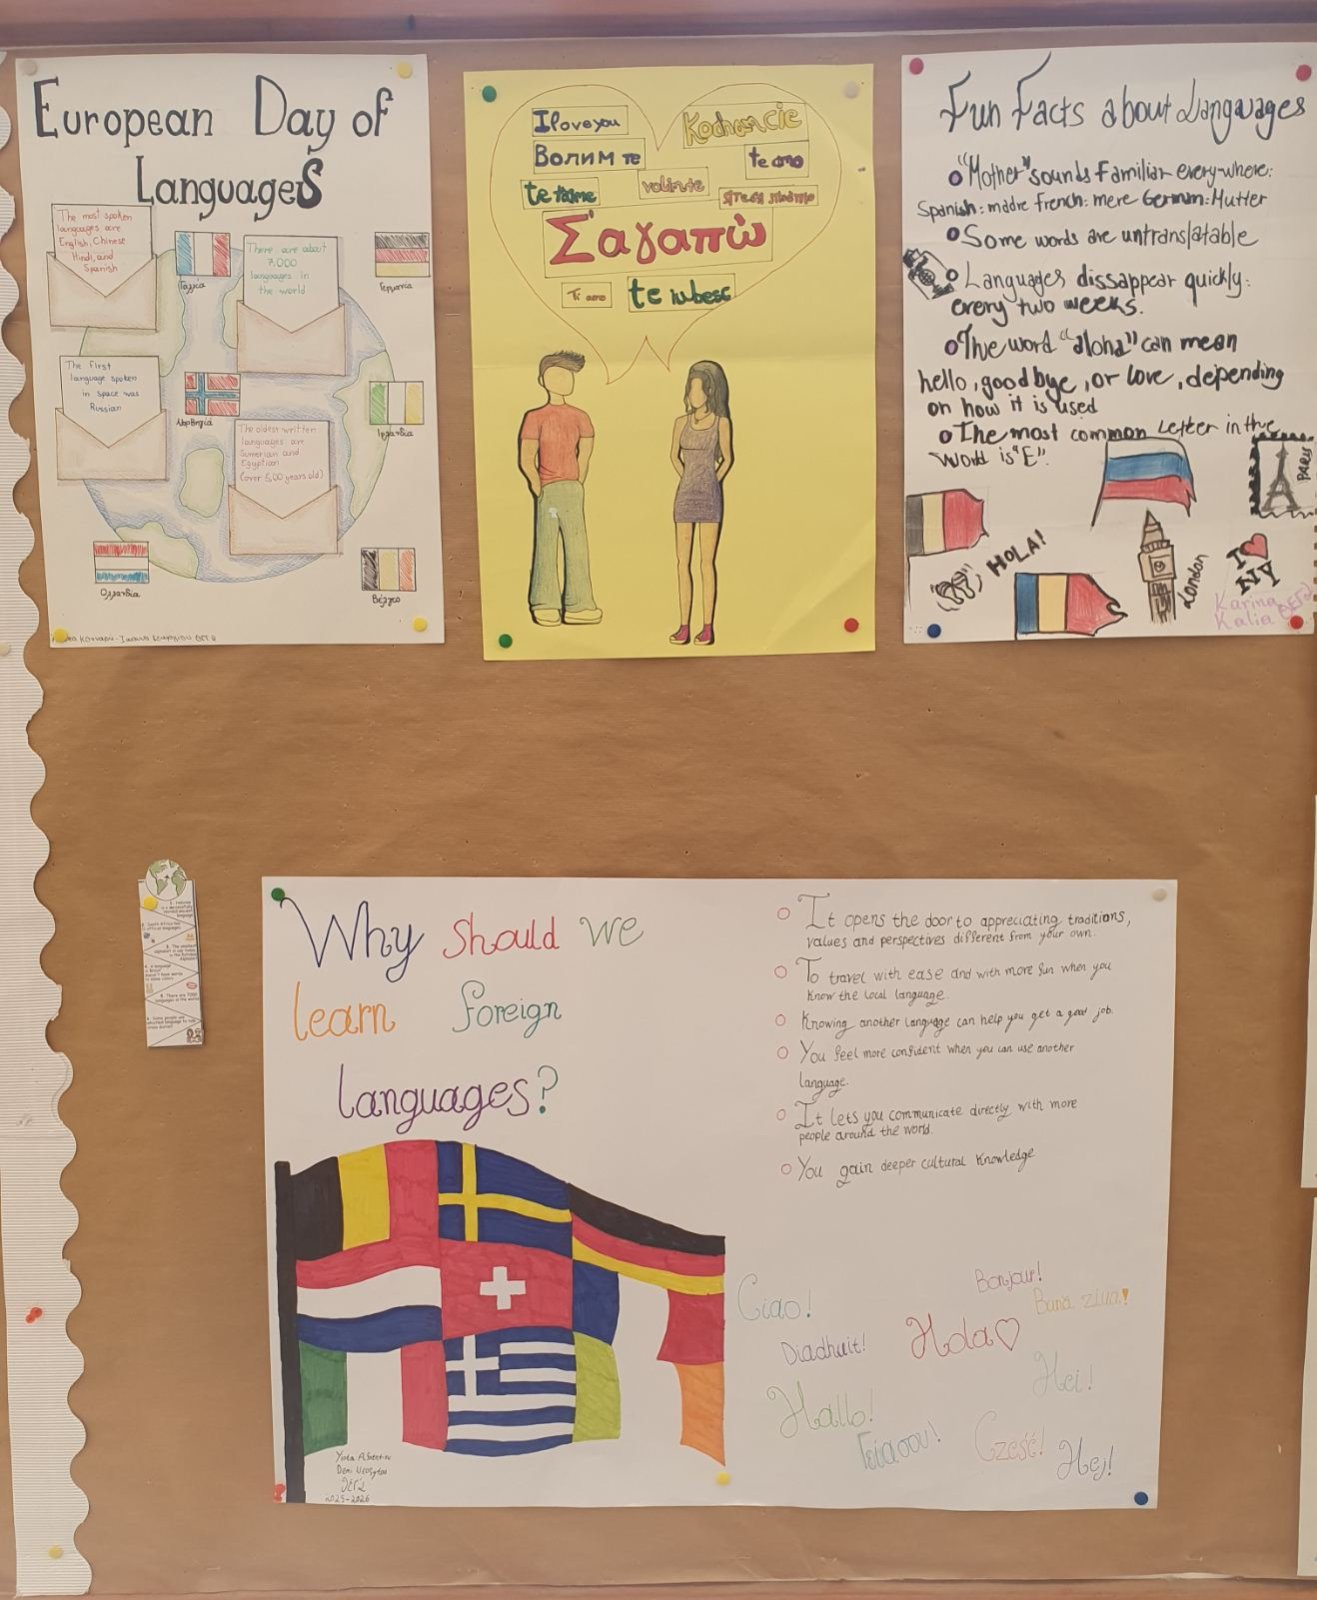 European Day of
Languages
The most spoken
languages are
English, Chinese
Hindi, and
Spanish
Γαλλία
There are about
7.000
languages in
the world
Γερμανία
The first
language spoken
in space was
Russian
Νορβηγία
The oldest written
languages are
Sumerian and
Egyptian
(over 5,00 years old)
Ιρλανδία
Ολλανδία
Βέλγιο
I love you
Kocham cie
Волим те
te amo
te t'aime
volim te
Σ'αγαπώ
Ti amo
te iubesc
Fun Facts about Languages
"Mother" sounds Familiar every-where:
Spanish: madre French: mere German: Mutter
Some words are untranslatable
Languages dissappear quickly:
every two weeks.
The word "aloha" can mean
hello, goodbye, or love, depending
on how it is used
The most common letter in the
World is "E".
PARIS
HOLA!
London
I
NY
Karina
Kalia
Why should we
learn foreign
languages?
It opens the door to appreciating traditions,
values and perspectives different from your own.
To travel with ease and with more fun when you
know the local language.
Knowing another language can help you get a good job.
You feel more confident when you can use another
language.
It lets you communicate directly with more
people around the world.
You gain deeper cultural knowledge
Ciao!
Bonjour!
Bună ziua!
Diadhuit!
Hola
Hei!
Hallo!
Γειασου!
Cześć!
Hej!
2025-2026